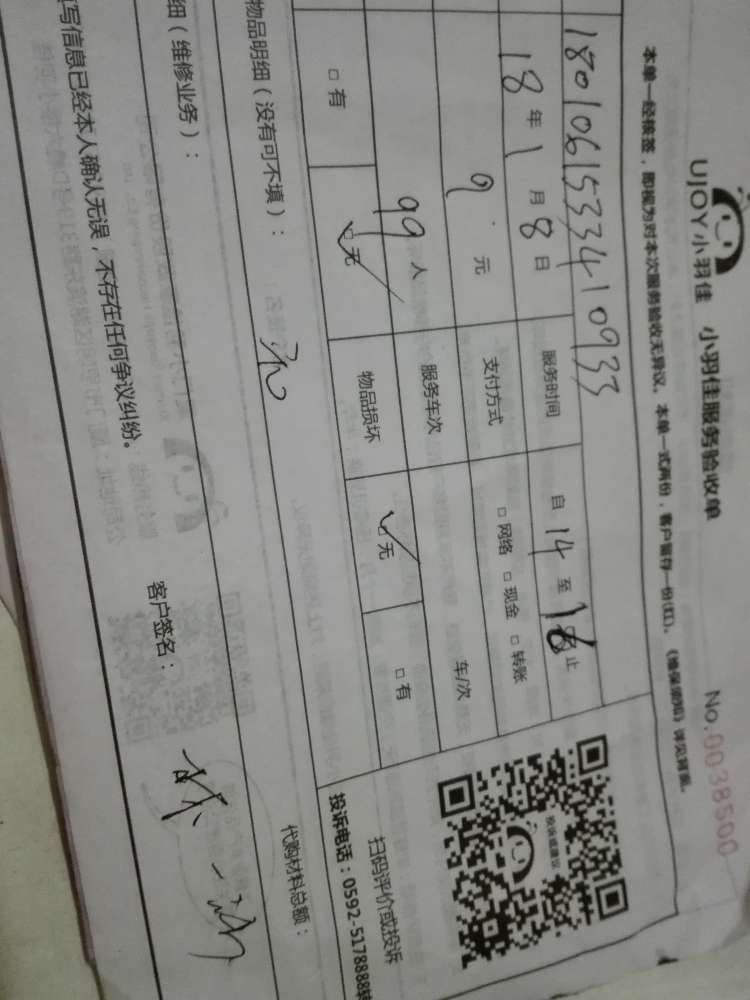 UJOY小羽佳 小羽佳服务验收单 No.0038500
本单一经核签，即视为对本次服务验收无异议。本单一式两份，客户留存一份(红)。《维保须知》详见背面。
180106153341 0933
18年1月8日 服务时间 自14至16 止
9.元 支付方式 □网络 □现金 □转账
99人 服务车次 车/次
□有 □无 物品损坏 □无 □有
投诉或建议
扫码评价或投诉
投诉电话：0592-5178888转
物品明细（没有可不填）： 代购材料总额：
细（维修业务）：
写信息已经本人确认无误，不存在任何争议纠纷。 客户签名：